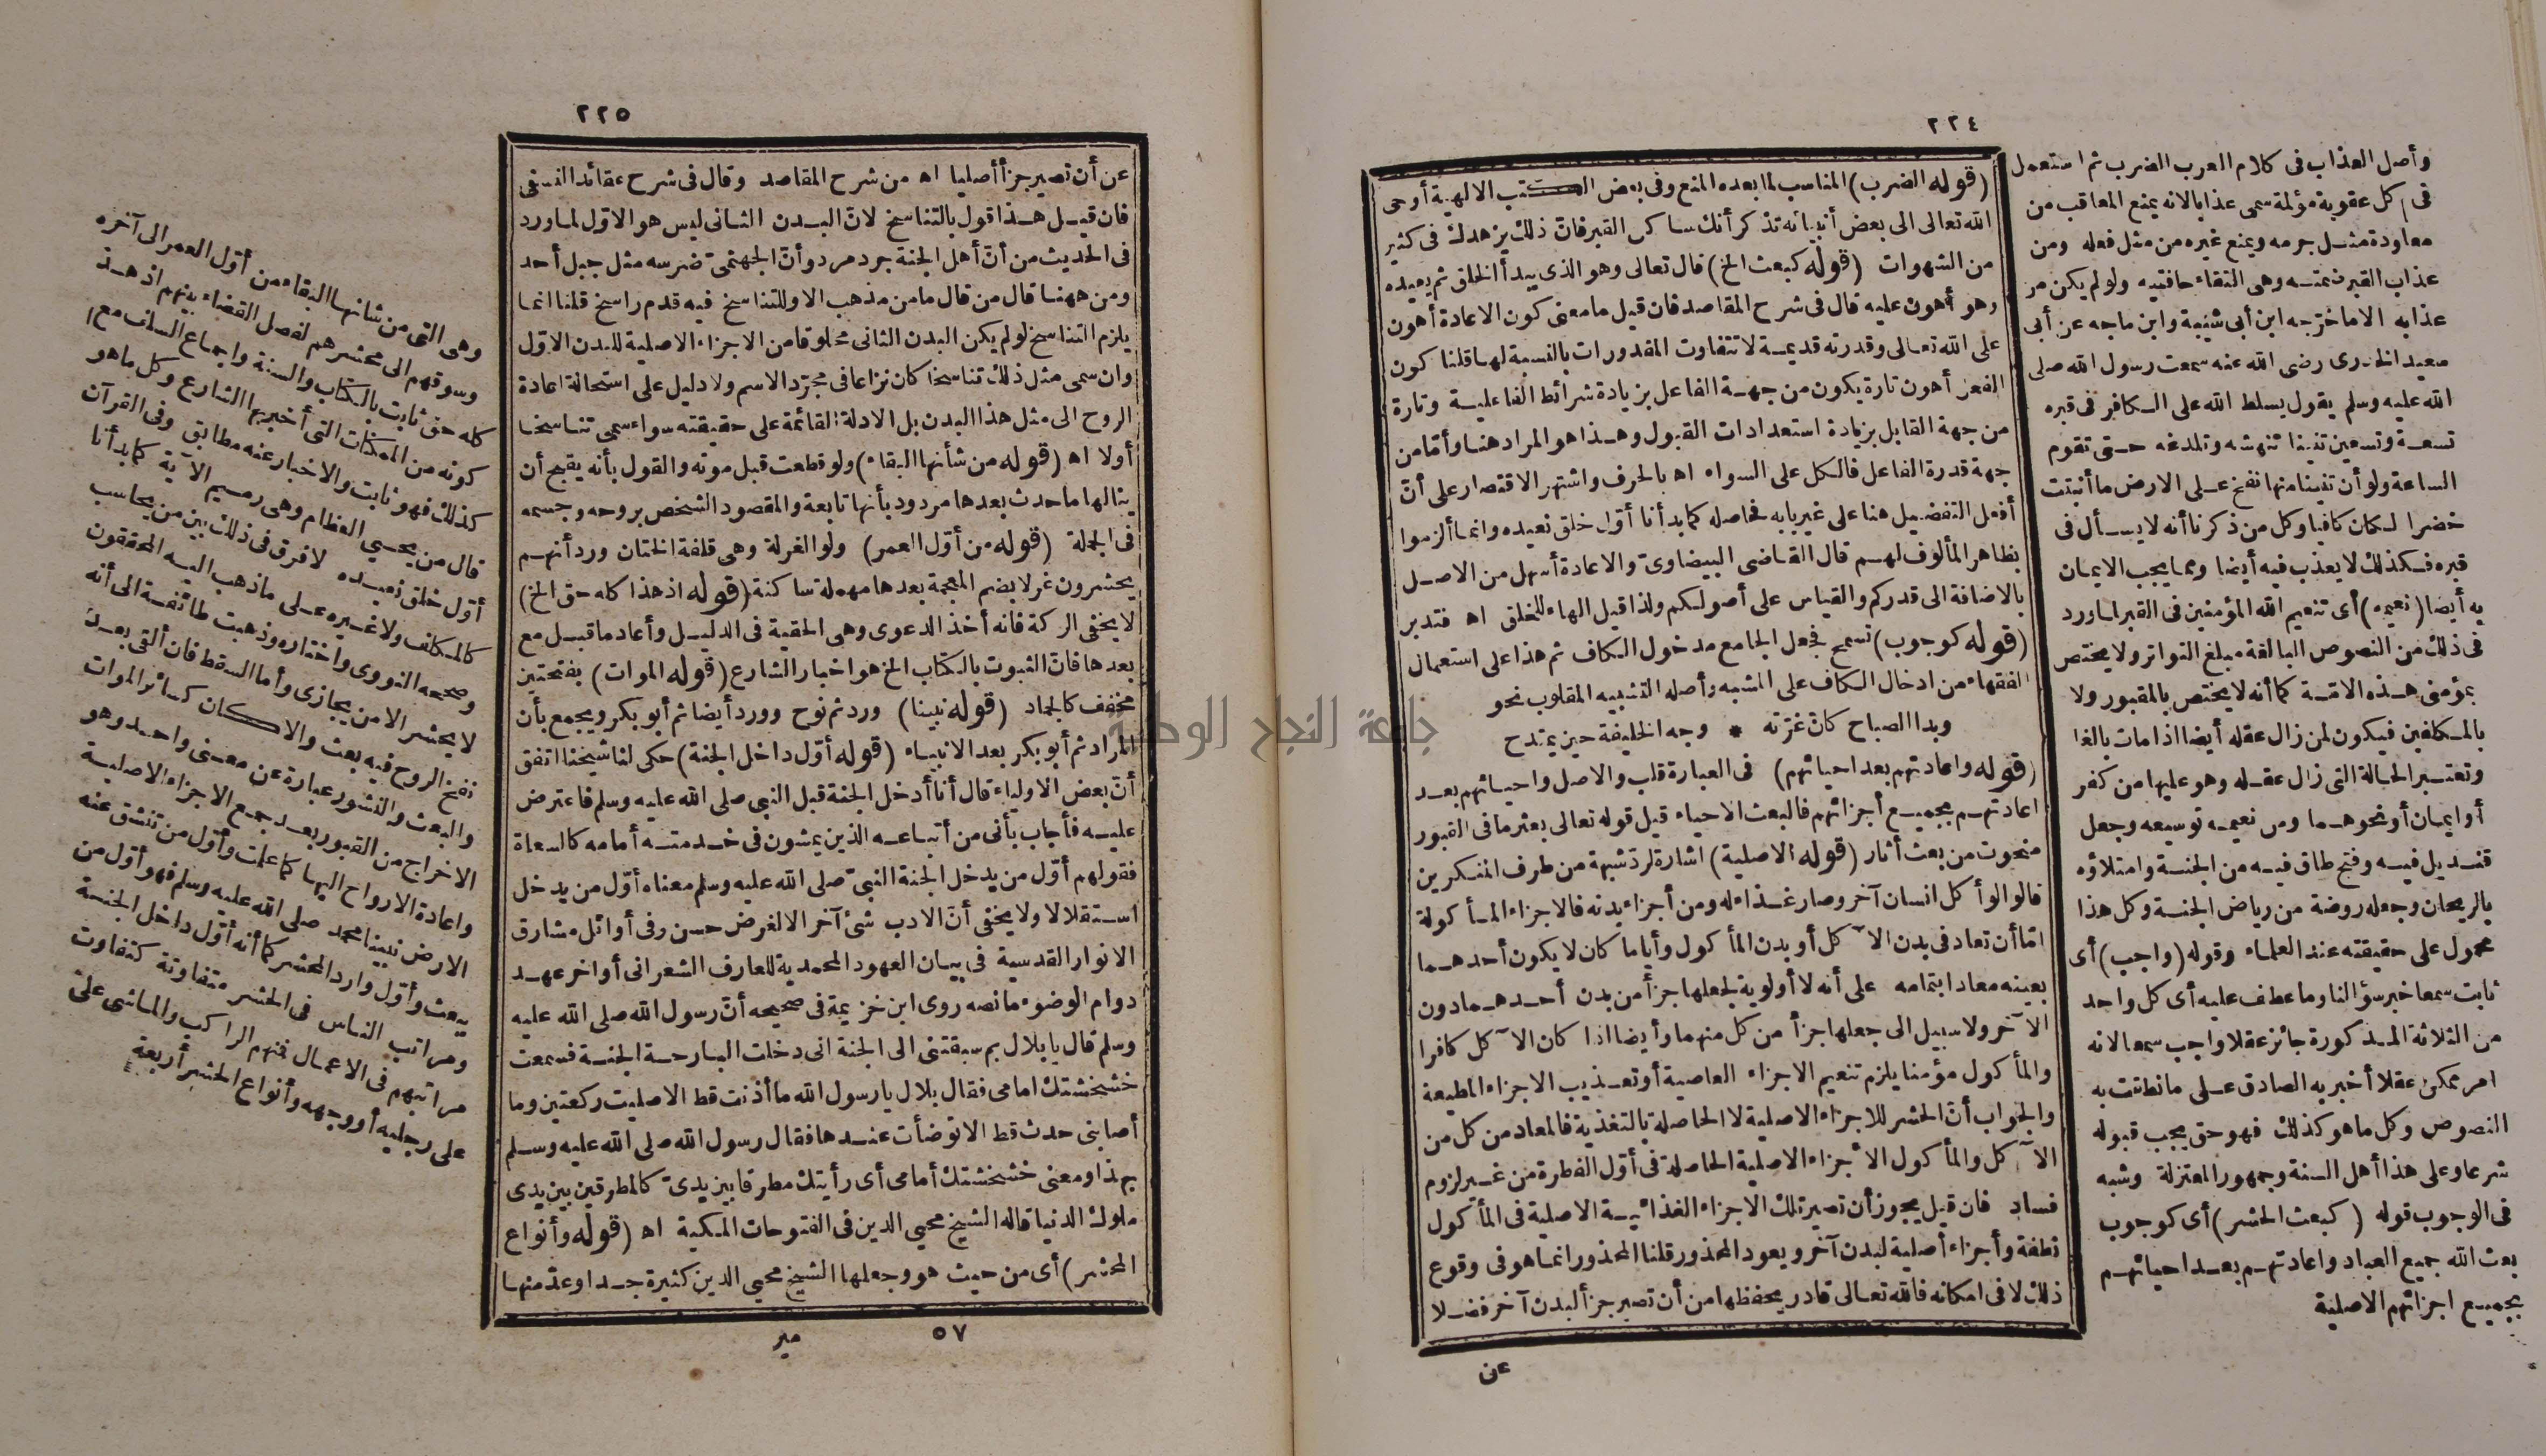 ٢٢٤
وأصل العذاب فى كلام العرب الضرب ثم استعمل
فى كل عقوبة مؤلمة سمى عذابا لانه يمنع المعاقب من
معاودة مثل جرمه ويمنع غيره من مثل فعله ومن
عذاب القبر ضمته وهى التقاء حافتيه ولولم يكن من
عذابه الاما خرّجه ابن أبى شيبة وابن ماجه عن أبى
سعيد الخدرى رضى الله عنه سمعت رسول الله صلى
الله عليه وسلم يقول يسلط الله على الكافر فى قبره
تسعة وتسعين تنينا تنهشه وتلدغه حتى تقوم
الساعة ولو أن تنينا منها نفخ على الارض ما أنبتت
خضرا لكان كافيا وكل من ذكرنا أنه لايسأل فى
قبره فكذلك لا يعذب فيه أيضا ومما يجب الايمان
به أيضا (نعيمه) أى تنعيم الله المؤمنين فى القبر لما ورد
فى ذلك من النصوص البالغة مبلغ التواتر ولا يختص
بمؤمنى هذه الامّة كما أنه لا يختص بالمقبور ولا
بالمكلفين فيكون لمن زال عقله أيضا اذا مات بالغا
وتعتبر الحالة التى زال عقله وهو عليها من كفر
أوايمان أونحوهما ومن نعيمه توسيعه وجعل
قنديل فيه وفتح طاق فيه من الجنة وامتلاؤه
بالريحان وجعله روضة من رياض الجنة وكل هذا
محمول على حقيقته عند العلماء وقوله (واجب) أى
ثابت سمعا خبر سؤالنا وما عطف عليه أى كل واحد
من الثلاثة المذكورة جائز عقلا واجب سمعا لانه
امر ممكن عقلا أخبر به الصادق على ما نطقت به
النصوص وكل ما هو كذلك فهو حق يجب قبوله
شرعا وعلى هذا أهل السنة وجمهور المعتزلة وشبه
فى الوجوب قوله (كبعث الحشر) أى كوجوب
بعث الله جميع العباد واعادتهم بعد احيائهم
بجميع اجزائهم الاصلية
(قوله الضرب) المناسب لما بعده المنع وفى بعض الكتب الالهية أوحى
الله تعالى الى بعض أنبيائه تذكر أنك ساكن القبر فانّ ذلك يزهدك فى كثير
من الشهوات (قوله كبعث الخ) قال تعالى وهو الذى يبدأ الخلق ثم يعيده
وهو أهون عليه قال فى شرح المقاصد فان قيل ما معنى كون الاعادة أهون
على الله تعالى وقدرته قديمة لا تتفاوت المقدورات بالنسبة لها قلنا كون
الفعل أهون تارة يكون من جهة الفاعل بزيادة شرائط الفاعلية وتارة
من جهة القابل بزيادة استعدادات القبول وهذا هو المراد هنا وأمّا من
جهة قدرة الفاعل فالكل على السواء اه بالحرف واشتهر الاقتصار على أنّ
أفعل التفضيل هنا على غير بابه فحاصله كما بدأنا أوّل خلق نعيده وانما ألزموا
بظاهر المألوف لهم قال القاضى البيضاوىّ والاعادة أسهل من الاصل
بالاضافة الى قدركم والقياس على أصولكم ولذا قيل الهاء للخلق اه فتدبر
(قوله كوجوب) تسمح فجعل الجامع مدخول الكاف ثم هذا على استعمال
الفقهاء من ادخال الكاف على المشبه وأصله التشبيه المقلوب نحو
وبدا الصباح كانّ غرّته * وجه الخليفة حين يمتدح
(قوله واعادتهم بعد احيائهم) فى العبارة قلب والاصل واحيائهم بعد
اعادتهم بجميع أجزائهم فالبعث الاحياء قيل قوله تعالى بعثر ما فى القبور
منحوت من بعث أثار (قوله الاصلية) اشارة لردّ شبهة من طرف المنكرين
قالوا لو أكل انسان آخر وصار غذاء له ومن أجزاء بدنه فالاجزاء المأكولة
امّا أن تعاد فى بدن الآكل أو بدن المأكول وأياما كان لا يكون أحدهما
بعينه معادا بتمامه على أنه لا أولوية لجعلها جزأ من بدن أحدهما دون
الآخر ولا سبيل الى جعلها جزأ من كل منهما وأيضا اذا كان الآكل كافرا
والمأكول مؤمنا يلزم تنعيم الاجزاء العاصية أو تعذيب الاجزاء المطيعة
والجواب أنّ الحشر للاجزاء الاصلية لا الحاصلة بالتغذية فالمعاد من كل من
الآكل والمأكول الأجزاء الاصلية الحاصلة فى أوّل الفطرة من غير لزوم
فساد فان قيل يجوز أن تصير تلك الاجزاء الغذائية الاصلية فى المأكول
نطفة وأجزاء أصلية لبدن آخر ويعود المحذور قلنا المحذور انما هو فى وقوع
ذلك لا فى امكانه فالله تعالى قادر يحفظها من أن تصير جزأ لبدن آخر فضلا
عن
٢٢٥
عن أن تصير جزأ أصليا اه من شرح المقاصد وقال فى شرح عقائد النسفى
فان قيل هذا قول بالتناسخ لانّ البدن الثانى ليس هو الاوّل لما ورد
فى الحديث من أنّ أهل الجنة جرد مرد وأنّ الجهنمىّ ضرسه مثل جبل أحد
ومن ههنا قال من قال ما من مذهب الا وللتناسخ فيه قدم راسخ قلنا انما
يلزم التناسخ لو لم يكن البدن الثانى مخلوقا من الاجزاء الاصلية للبدن الاوّل
وان سمى مثل ذلك تناسخا كان نزاعا فى مجرّد الاسم ولا دليل على استحالة اعادة
الروح الى مثل هذا البدن بل الادلة القائمة على حقيقته سواء سمى تناسخا
أولا اه (قوله من شأنها البقاء) ولو قطعت قبل موته والقول بأنه يقبح أن
ينالها ما حدث بعدها مردود بأنها تابعة والمقصود الشخص بروحه وجسمه
فى الجملة (قوله من أوّل العمر) ولو الغرلة وهى قلفة الختان ورد أنهم
يحشرون غرلا بضم المعجمة بعدها مهملة ساكنة (قوله اذ هذا كله حق الخ)
لا يخفى الركة فانه أخذ الدعوى وهى الحقية فى الدليل وأعاد ما قبل مع
بعدها فانّ الثبوت بالكتاب الخ هو اخبار الشارع (قوله الموات) بفتحتين
مخفف كالجماد (قوله نبينا) ورد ثم نوح وورد أيضا ثم أبو بكر ويجمع بأن
المراد ثم أبو بكر بعد الانبياء (قوله أوّل داخل الجنة) حكى لنا شيخنا اتفق
أنّ بعض الاولياء قال أنا أدخل الجنة قبل النبى صلى الله عليه وسلم فاعترض
عليه فأجاب بأنى من أتباعه الذين يمشون فى خدمته أمامه كالسعاة
فقولهم أوّل من يدخل الجنة النبىّ صلى الله عليه وسلم معناه أوّل من يدخل
استقلالا ولا يخفى أنّ الادب شئ آخر الا لغرض حسن وفى أوائل مشارق
الانوار القدسية فى بيان العهود المحمدية للعارف الشعرانى أواخر عهد
دوام الوضوء ما نصه روى ابن خزيمة فى صحيحه أنّ رسول الله صلى الله عليه
وسلم قال يا بلال بم سبقتنى الى الجنة انى دخلت البارحة الجنة فسمعت
خشخشتك امامى فقال بلال يا رسول الله ما أذنت قط الا صليت ركعتين وما
أصابنى حدث قط الا توضأت عندها فقال رسول الله صلى الله عليه وسلم
بهذا ومعنى خشخشتك أمامى أى رأيتك مطرقا بين يدىّ كالمطرقين بين يدى
ملوك الدنيا قاله الشيخ محيى الدين فى الفتوحات المكية اه (قوله وأنواع
الحشر) أى من حيث هو وجعلها الشيخ محيى الدين كثيرة جدا وعدّ منها
٥٧ مير
وهى التى من شانها البقاء من أوّل العمر الى آخره
وسوقهم الى محشرهم لفصل القضاء بينهم اذ هذا
كله حق ثابت بالكتاب والسنة واجماع السلف مع
كونه من الممكنات التى أخبر بها الشارع وكل ما هو
كذلك فهو ثابت والاخبار عنه مطابق وفى القرآن
قال من يحيي العظام وهى رميم الآية كما بدأنا
أوّل خلق نعيده لا فرق فى ذلك بين من يحاسب
كالمكلف ولا غيره على ما ذهب اليه المحققون
وصححه النووى واختاره وذهبت طائفة الى أنه
لا يحشر الا من يجازى وأما السقط فان ألقى بعد
نفخ الروح فيه بعث والا كان كسائر الموات
والبعث والنشور عبارة عن معنى واحد وهو
الاخراج من القبور بعد جمع الاجزاء الاصلية
واعادة الارواح اليها كما علمت وأوّل من تنشق عنه
الارض نبينا محمد صلى الله عليه وسلم فهو أوّل من
يبعث وأوّل وارد المحشر كما أنه أوّل داخل الجنة
ومراتب الناس فى الحشر متفاوتة كتفاوت
مراتبهم فى الاعمال فمنهم الراكب والماشى على
على رجليه أو وجهه وأنواع الحشر أربعة
جامعة النجاح الوطنية